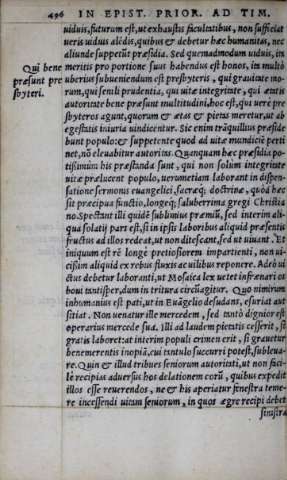 496 IN EPIST. PRIOR. AD TIM.
uiduis, futurum est, ut exhaustis facultatibus, non sufficiat
ueris uiduis alēdis, quibus & debetur hæc humanitas, nec
aliunde suppetūt præsidia. Sed quemadmodum uiduis, in
Qui bene meritis pro portione suus habendus est honos, ita multò
præsunt pre uberius subueniendum est presbyteris, qui grauitate mo-
sbyteri. rum, qui senili prudentia, qui uitæ integritate, qui ætatis
autoritate bene præsunt multitudini, hoc est, qui uerè pre
sbyteros agunt, quorum & ætas & pietas meretur, ut ab
egestatis iniuria uindicentur. Sic enim trāquillius præside
bunt populo: & suppetente quod ad uitæ mundiciē perti
net, nō eleuabitur autoritas. Quanquam hæc præsidia po-
tißimùm his præstanda sunt, qui non solùm integritate
uitæ prælucent populo, uerumetiam laborant in dispen-
satione sermonis euangelici, sacræq; doctrinæ, quòd hæc
sit præcipua functio, longeq; saluberrima gregi Christia
no. Spectant illi quidē sublimius præmiū, sed interim ali-
qua solatij pars est, si in ipsis laboribus aliquid præsentis
fructus ad illos redeat, ut non ditescant, sed ut uiuant. Et
iniquum est rē longè pretiosiorem impartienti, non ui-
cißim aliquid ex rebus fluxis ac uilibus reponere. Adeò ui
ctus debetur laboranti, ut Mosaica lex uetet infrænari os
boui tantisper, dum in tritura circūagitur. Quo nimirum
inhumanius est pati, ut in Euāgelio desudans, esuriat aut
sitiat. Non uenatur ille mercedem, sed tantò dignior est
operarius mercede sua. Illi ad laudem pietatis cesserit, si
gratis laboret: at interim populi crimen erit, si grauetur
benemerentis inopiā, cui tantulo succurri potest, subleua-
re. Quin & illud tribues seniorum autoritati, ut non faci-
lè recipias aduersus hos delationem eorū, quibus expedit
illos esse reuerendos, ne & his aperiatur fenestra teme-
re incessendi uitam seniorum, in quos ægre recipi debet
sinistra